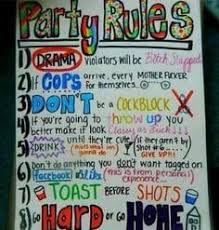 Party Rules
1) DRAMA violators will be Bitch Slapped
2) If COPS arrive, every MOTHER FUCKER
for themselves
3) DON'T be a COCKBLOCK
4) If you're going to throw up you
better make it look Classy as Fuck
5) DRINK until they're cute (if they aren't by
GIVE UP!!)
6) Don't do anything you don't want tagged on
facebook (this is from personal
experience...
7) TOAST BEFORE SHOTS
8) Go HARD or Go HOME